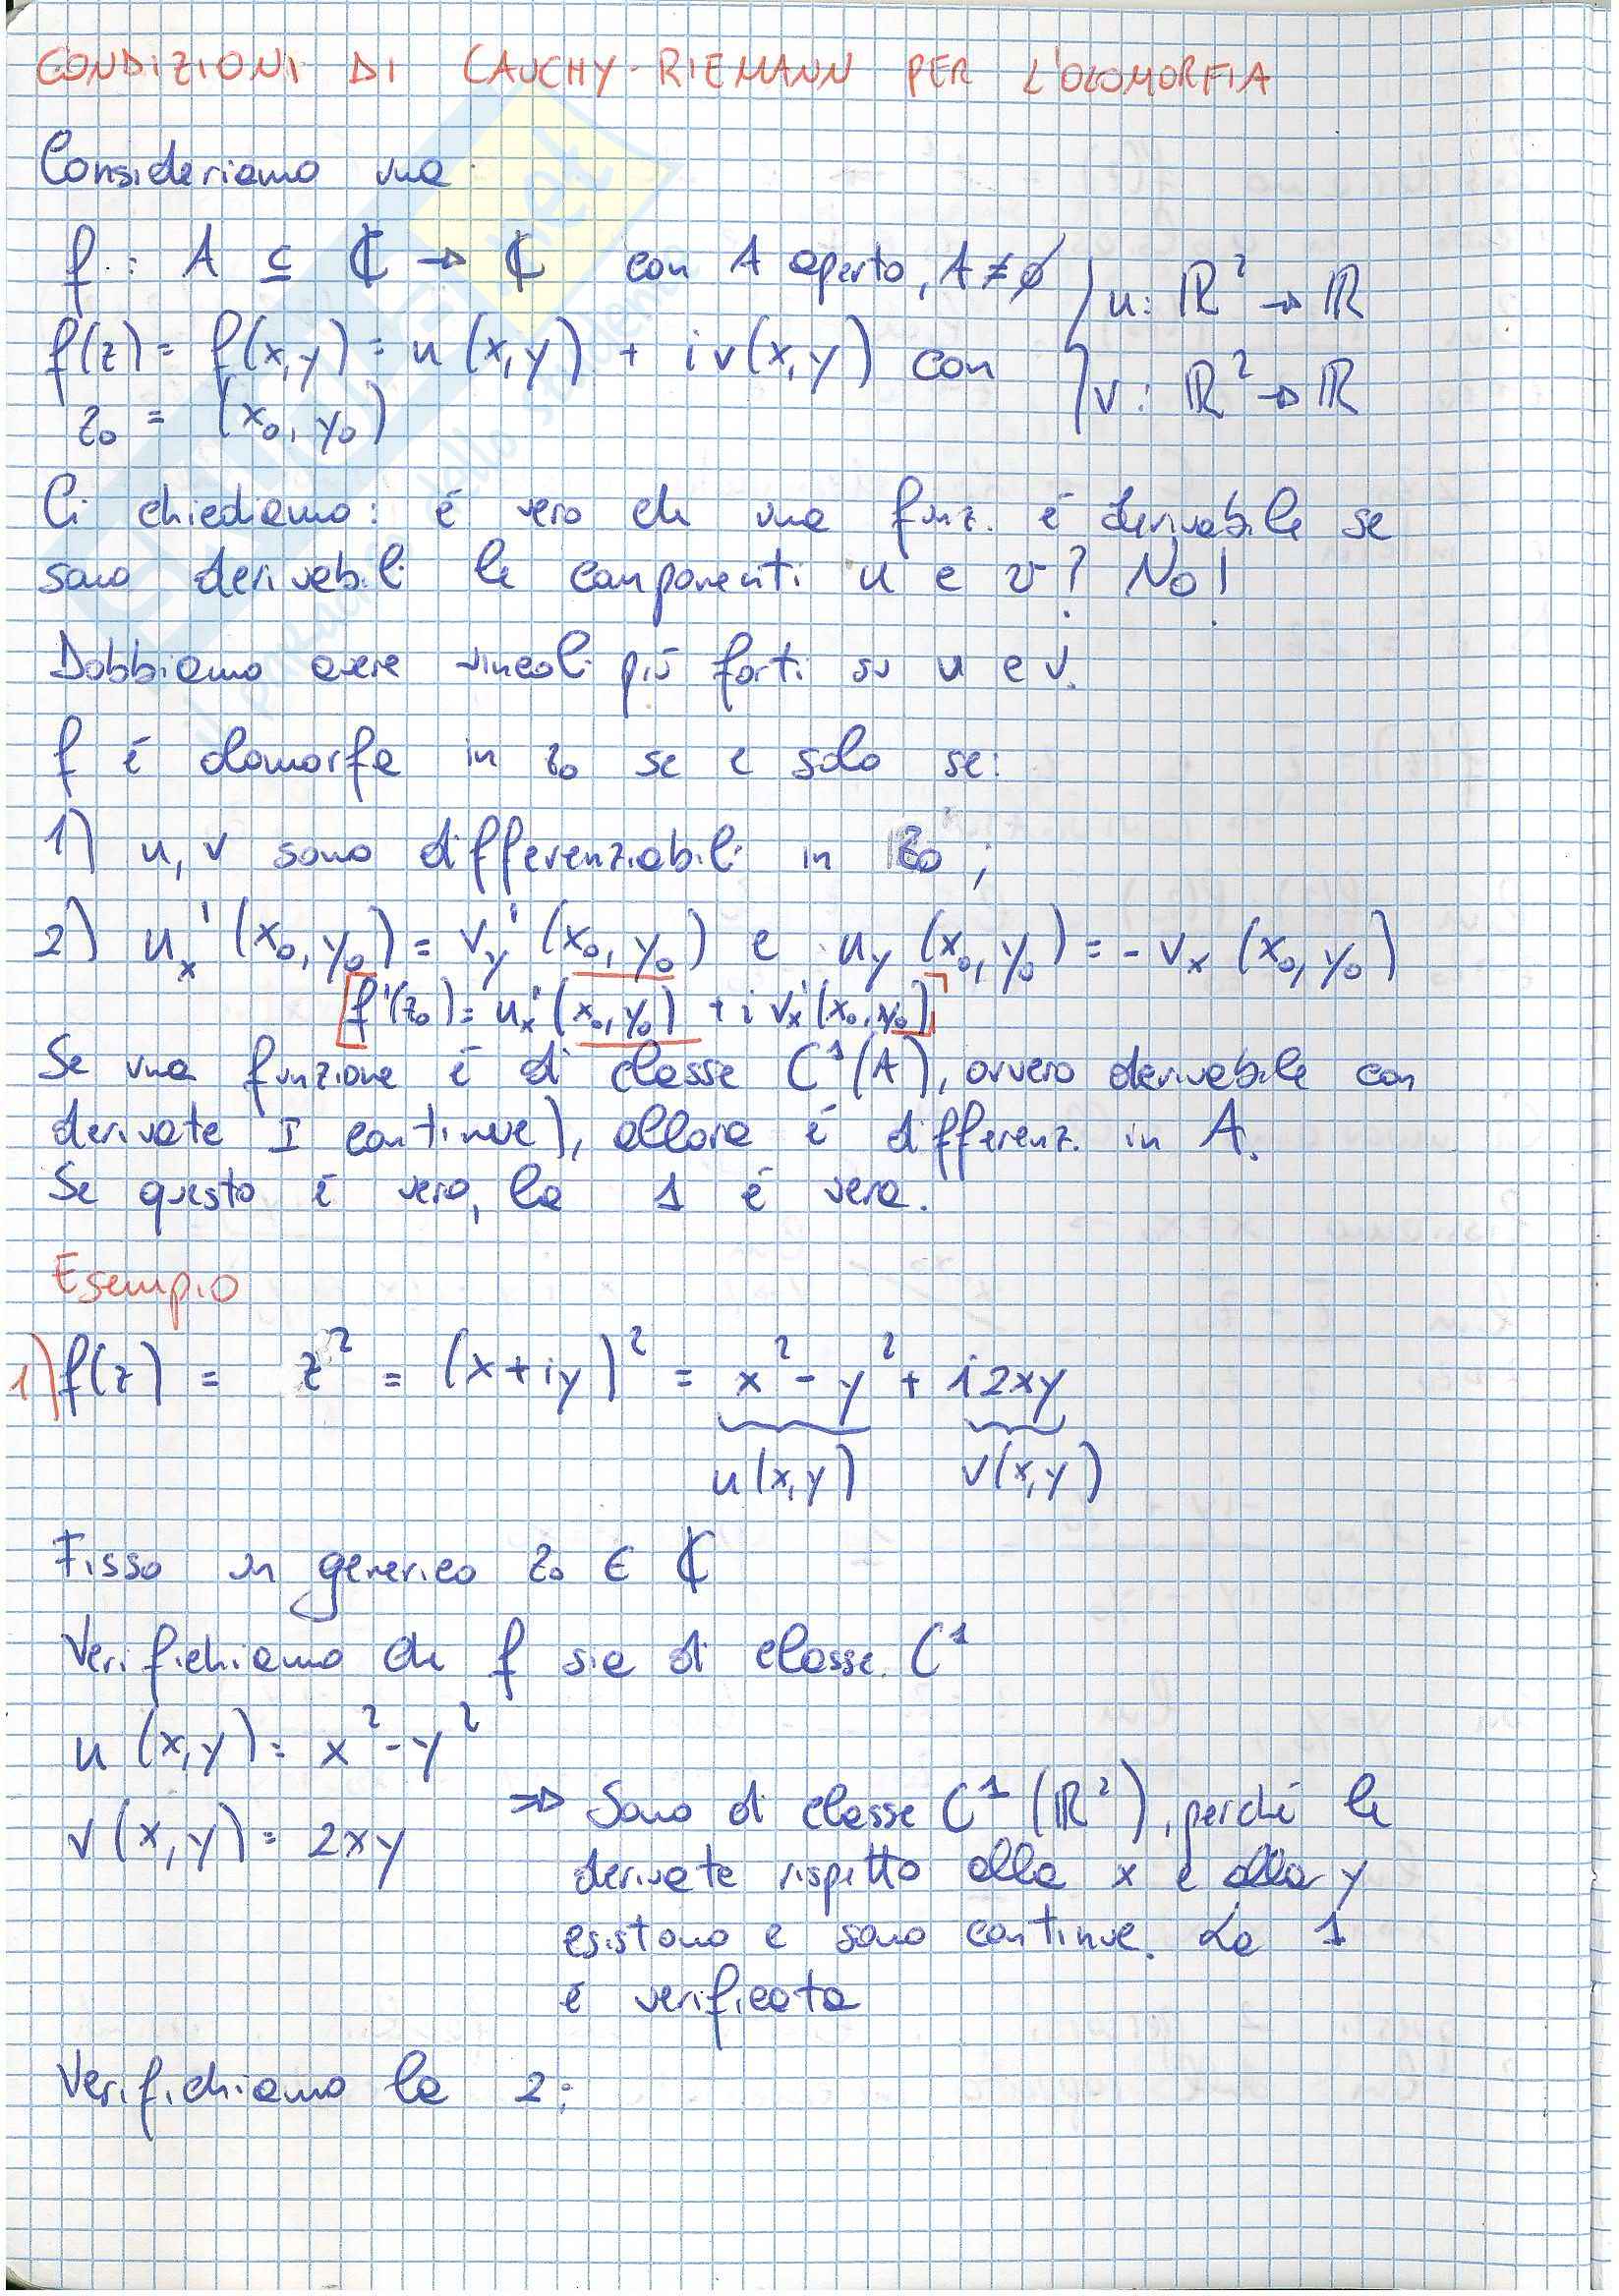 CONDIZIONI DI CAUCHY-RIEMANN PER L'OLOMORFIA
Consideriamo una
f: A ⊆ ℂ → ℂ con A aperto, A ≠ ∅ { u: ℝ² → ℝ
f(z) = f(x,y) = u(x,y) + i v(x,y) con { v: ℝ² → ℝ
z₀ = (x₀, y₀)
Ci chiediamo: é vero che una funz. é derivabile se
sono derivabili le componenti u e v? No!
Dobbiamo avere vincoli più forti su u e v.
f é olomorfa in z₀ se e solo se:
1) u, v sono differenziabili in z₀;
2) uₓ'(x₀,y₀) = v_y'(x₀,y₀) e u_y(x₀,y₀) = -vₓ(x₀,y₀)
[f'(z₀) = uₓ'(x₀,y₀) + i vₓ'(x₀,y₀)]
Se una funzione é di classe C¹(A), ovvero derivabile con
derivate I continue), allora é differenz. in A.
Se questo é vero, la 1 é vera.
Esempio
1) f(z) = z² = (x+iy)² = x² - y² + i2xy
u(x,y) v(x,y)
Fisso un generico z₀ ∈ ℂ
Verifichiamo che f sia di classe C¹
u(x,y) = x² - y²
v(x,y) = 2xy
⇒ Sono di classe C¹(ℝ²), perché le
derivate rispetto alla x e alla y
esistono e sono continue. La 1
é verificata
Verifichiamo la 2:
.net